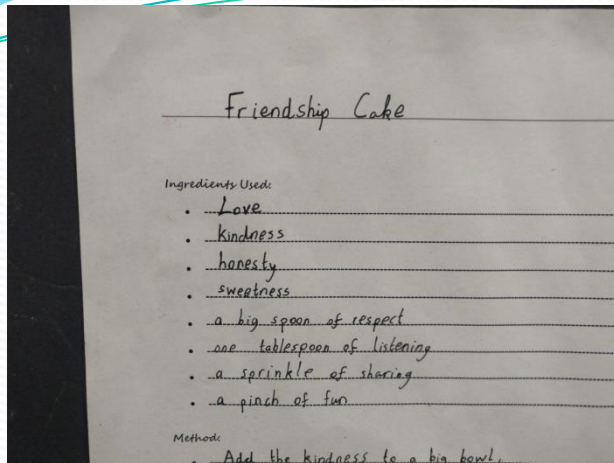 Friendship Cake
Ingredients Used:
• Love
• kindness
• honesty
• sweetness
• a big spoon of respect
• one tablespoon of listening
• a sprinkle of sharing
• a pinch of fun
Method:
• Add the kindness to a big bowl,